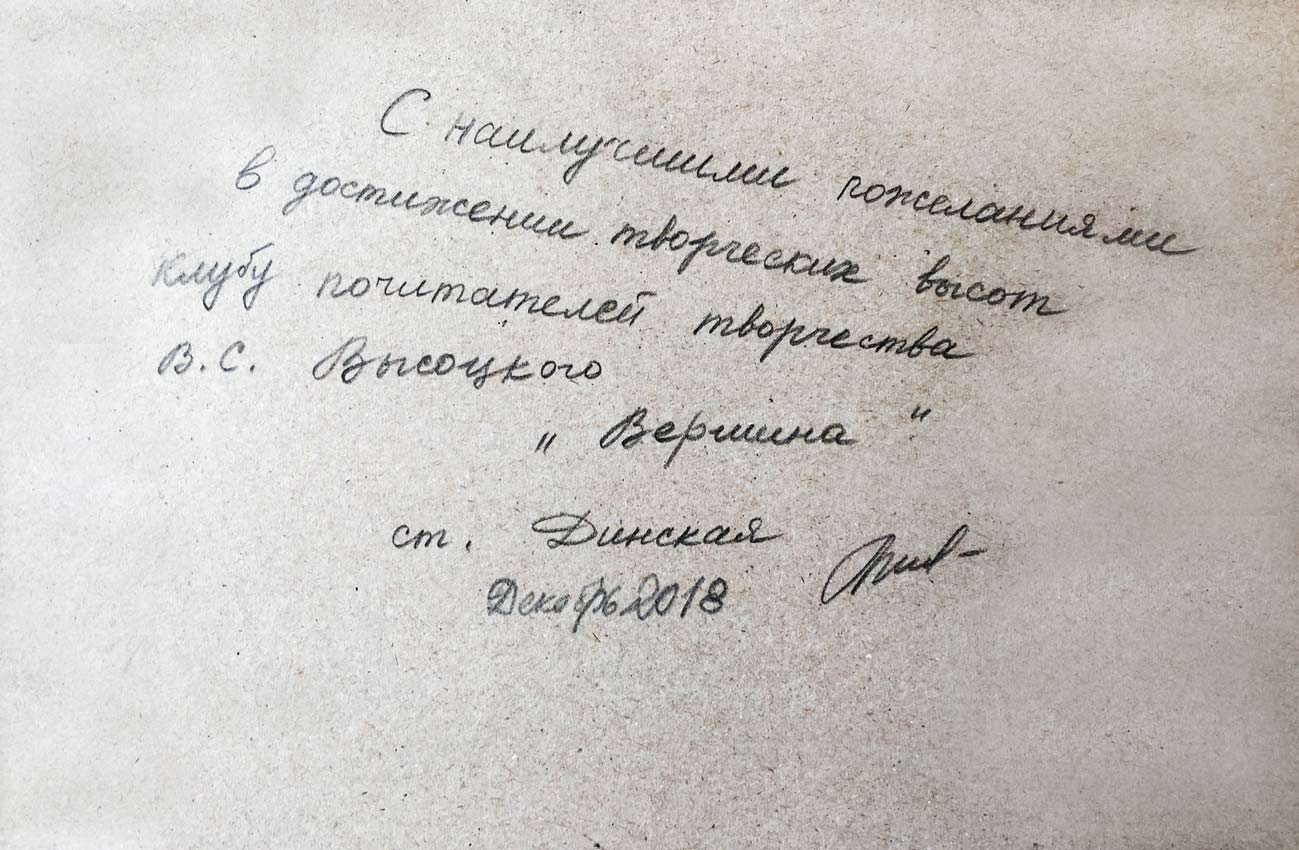 С наилучшими пожеланиями
в достижении творческих высот
клубу почитателей творчества
В.С. Высоцкого
„ Вершина "
ст. Динская
Декабрь 2018